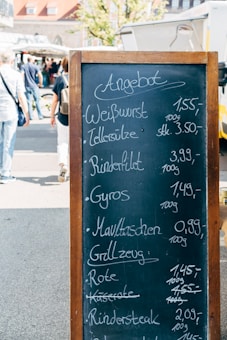 Angebot
Weißwurst 1,55,-
100g
· Tellersülze stk. 3.50,-
· Rinderfilet 3,99,-
100g
· Gyros 1,49,-
100g
· Maultaschen 0,99,-
100g
Grillzeug:
· Rote 1,45,-
100g
· Käserote 1,65,-
100g
· Rindersteak 2,09,-
100g
1,45